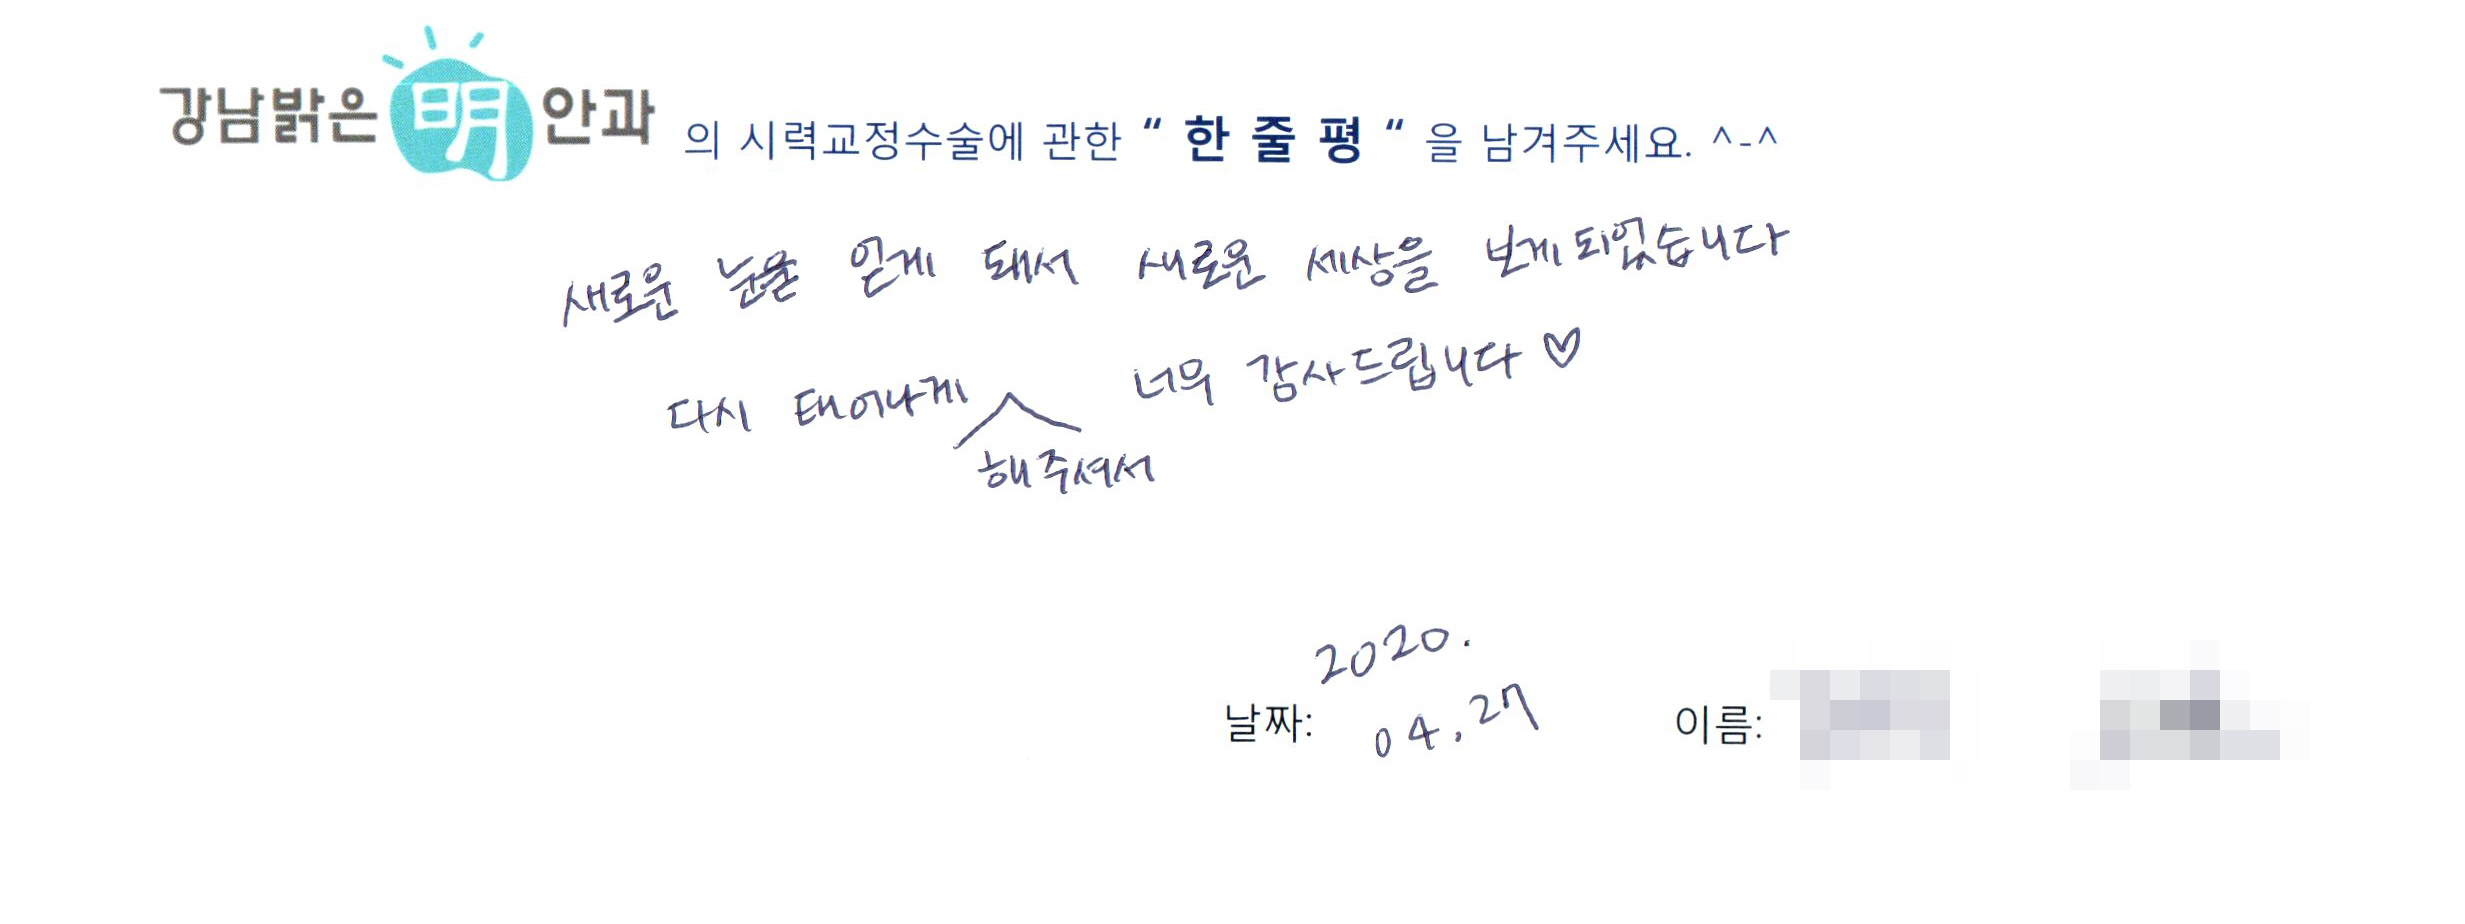 강남밝은明안과 의 시력교정수술에 관한 “ 한 줄 평 “ 을 남겨주세요. ^-^
새로운 눈을 얻게 돼서 새로운 세상을 보게 되었습니다
다시 태어나게 해주셔서 너무 감사드립니다 ♡
2020.
날짜: 04.27 이름: